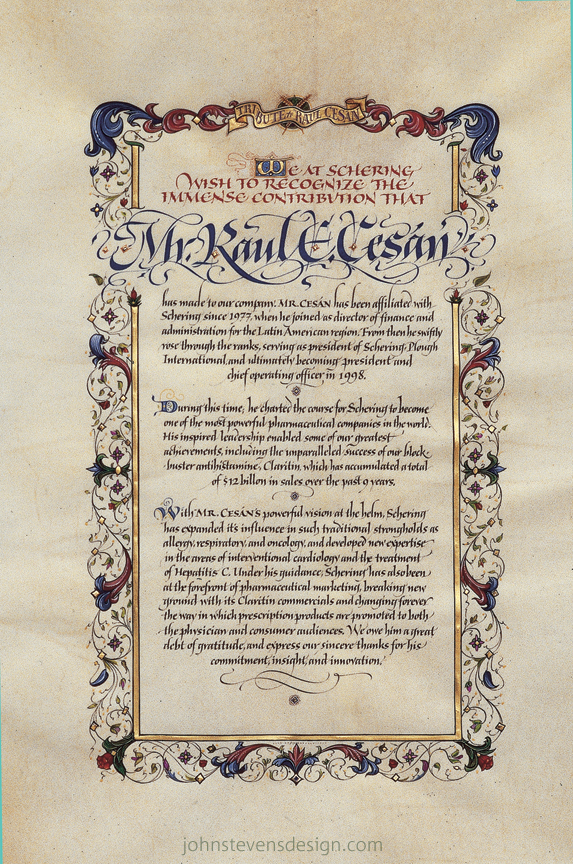 TRIBUTE to RAUL CESÁN
WE AT SCHERING
WISH TO RECOGNIZE THE
IMMENSE CONTRIBUTION THAT
Mr. Raul E. Cesán
has made to our company. MR. CESÁN has been affiliated with
Schering since 1977, when he joined as director of finance and
administration for the Latin American region. From then he swiftly
rose through the ranks, serving as president of Schering-Plough
International, and ultimately becoming president and
chief operating officer in 1998.
During this time, he charted the course for Schering to become
one of the most powerful pharmaceutical companies in the world.
His inspired leadership enabled some of our greatest
achievements, including the unparalleled success of our block-
buster antihistamine, Claritin, which has accumulated a total
of $12 billon in sales over the past 9 years.
With MR. CESÁN'S powerful vision at the helm, Schering
has expanded it's influence in such traditional strongholds as
allergy, respiratory, and oncology, and developed new expertise
in the areas of interventional cardiology and the treatment
of Hepatitis C. Under his guidance, Schering has also been
at the forefront of pharmaceutical marketing, breaking new
ground with its Claritin commercials and changing forever
the way in which prescription products are promoted to both
the physician and consumer audiences. We owe him a great
debt of gratitude, and express our sincere thanks for his
commitment, insight, and innovation.
johnstevensdesign.com